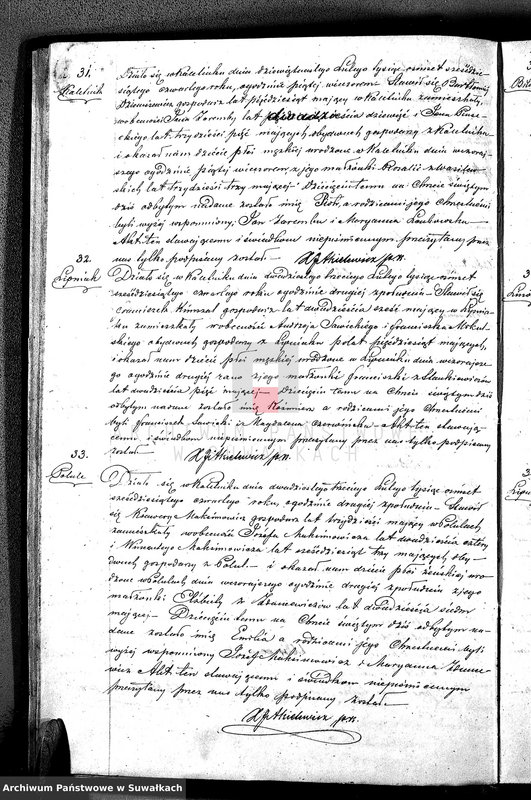 31.
Kaletnik
Działo się w Kaletniku dnia dziewiętnastego Lutego tysiąc ośmset sześćdzie-
siątego czwartego roku, o godzinie piątej wieczorem. Stawił się Bartłomiej
gospodarz lat pięćdziesiąt mający w Kaletniku zamieszkały,
w obecności Jana Zaremby lat dwadzieścia dziewięć i Jana
lat trzydzieści pięć mających, obydwóch gospodarzy z Kaletnika
i okazał nam dziecię płci męzkiej urodzone w Kaletniku dnia wczoraj-
szego o godzinie piątej wieczorem, z jego małżonki Rozalii
lat trzydzieści trzy mającej. Dziecięciu temu na Chrzcie świętym
dziś odbytym nadane zostało imię Piotr, a rodzicami jego Chrzestnemi
byli wyżej wspomniony Jan Zaremba i Maryanna
Akt ten stawającemu i świadkom niepiśmiennym przeczytany przez
nas tylko podpisany został.
32.
Lipniak
Działo się w Kaletniku dnia dwudziestego trzeciego Lutego tysiąc ośmset
sześćdziesiątego czwartego roku, o godzinie drugiej z południa. Stawił się
gospodarz lat dwadzieścia sześć mający w Lipnia-
ku zamieszkały w obecności Andrzeja Sawickiego i Franciszka
obydwóch gospodarzy z Lipniaka po lat pięćdziesiąt mających,
i okazał nam dziecię płci męzkiej urodzone w Lipniaku dnia wczorajsze-
go o godzinie drugiej rano z jego małżonki Franciszki z Stankiewiczów
lat dwadzieścia pięć mającej. Dziecięciu temu na Chrzcie świętym dziś
odbytym nadane zostało imię Kazimierz a rodzicami jego Chrzestnemi
byli Franciszek Sawicki i Magdalena Akt ten stawają-
cemu i świadkom niepiśmiennym przeczytany przez nas tylko podpisany
został.
33.
Potule
Działo się w Kaletniku dnia dwudziestego trzeciego Lutego tysiąc ośmset
sześćdziesiątego czwartego roku, o godzinie drugiej z południa. Stawił
się Ksawery Maksimowicz gospodarz lat trzydzieści mający w Potulach
zamieszkały w obecności Józefa Maksimowicza lat dwadzieścia cztery
i Wincentego Maksimowicza lat sześćdziesiąt trzy mających, oby-
dwóch gospodarzy z Potul. i okazał nam dziecię płci żeńskiej uro-
dzone w Potulach dnia wczorajszego o godzinie drugiej z południa z jego
małżonki Elżbiety z lat dwadzieścia siedm
mającej. Dziecięciu temu na Chrzcie świętym dziś odbytym na-
dane zostało imię Emilia a rodzicami jego Chrzestnemi byli
wyżej wspomniony Józef Maksimowicz i Maryanna
Akt ten stawającemu i świadkom niepiśmiennym
przeczytany przez nas tylko podpisany został.
Archiwum Państwowe w Suwałkach